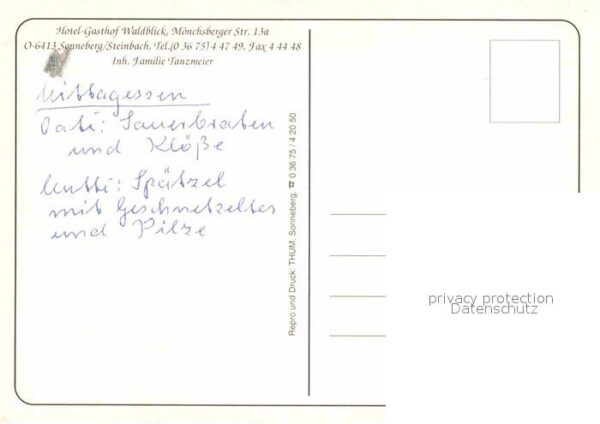 Hotel-Gasthof Waldblick, Mönchsberger Str. 13a
O-6413 Sonneberg/Steinbach, Tel.(0 36 75) 4 47 49, Fax 4 44 48
Inh. Familie Tanzmeier
Mittagessen
Vati: Sauerbraten
und Klöße
Mutti: Spätzel
mit Geschnetzeltes
und Pilze
Repro und Druck: THUM, Sonneberg, ☎ 0 36 75 / 4 20 50
privacy protection
Datenschutz